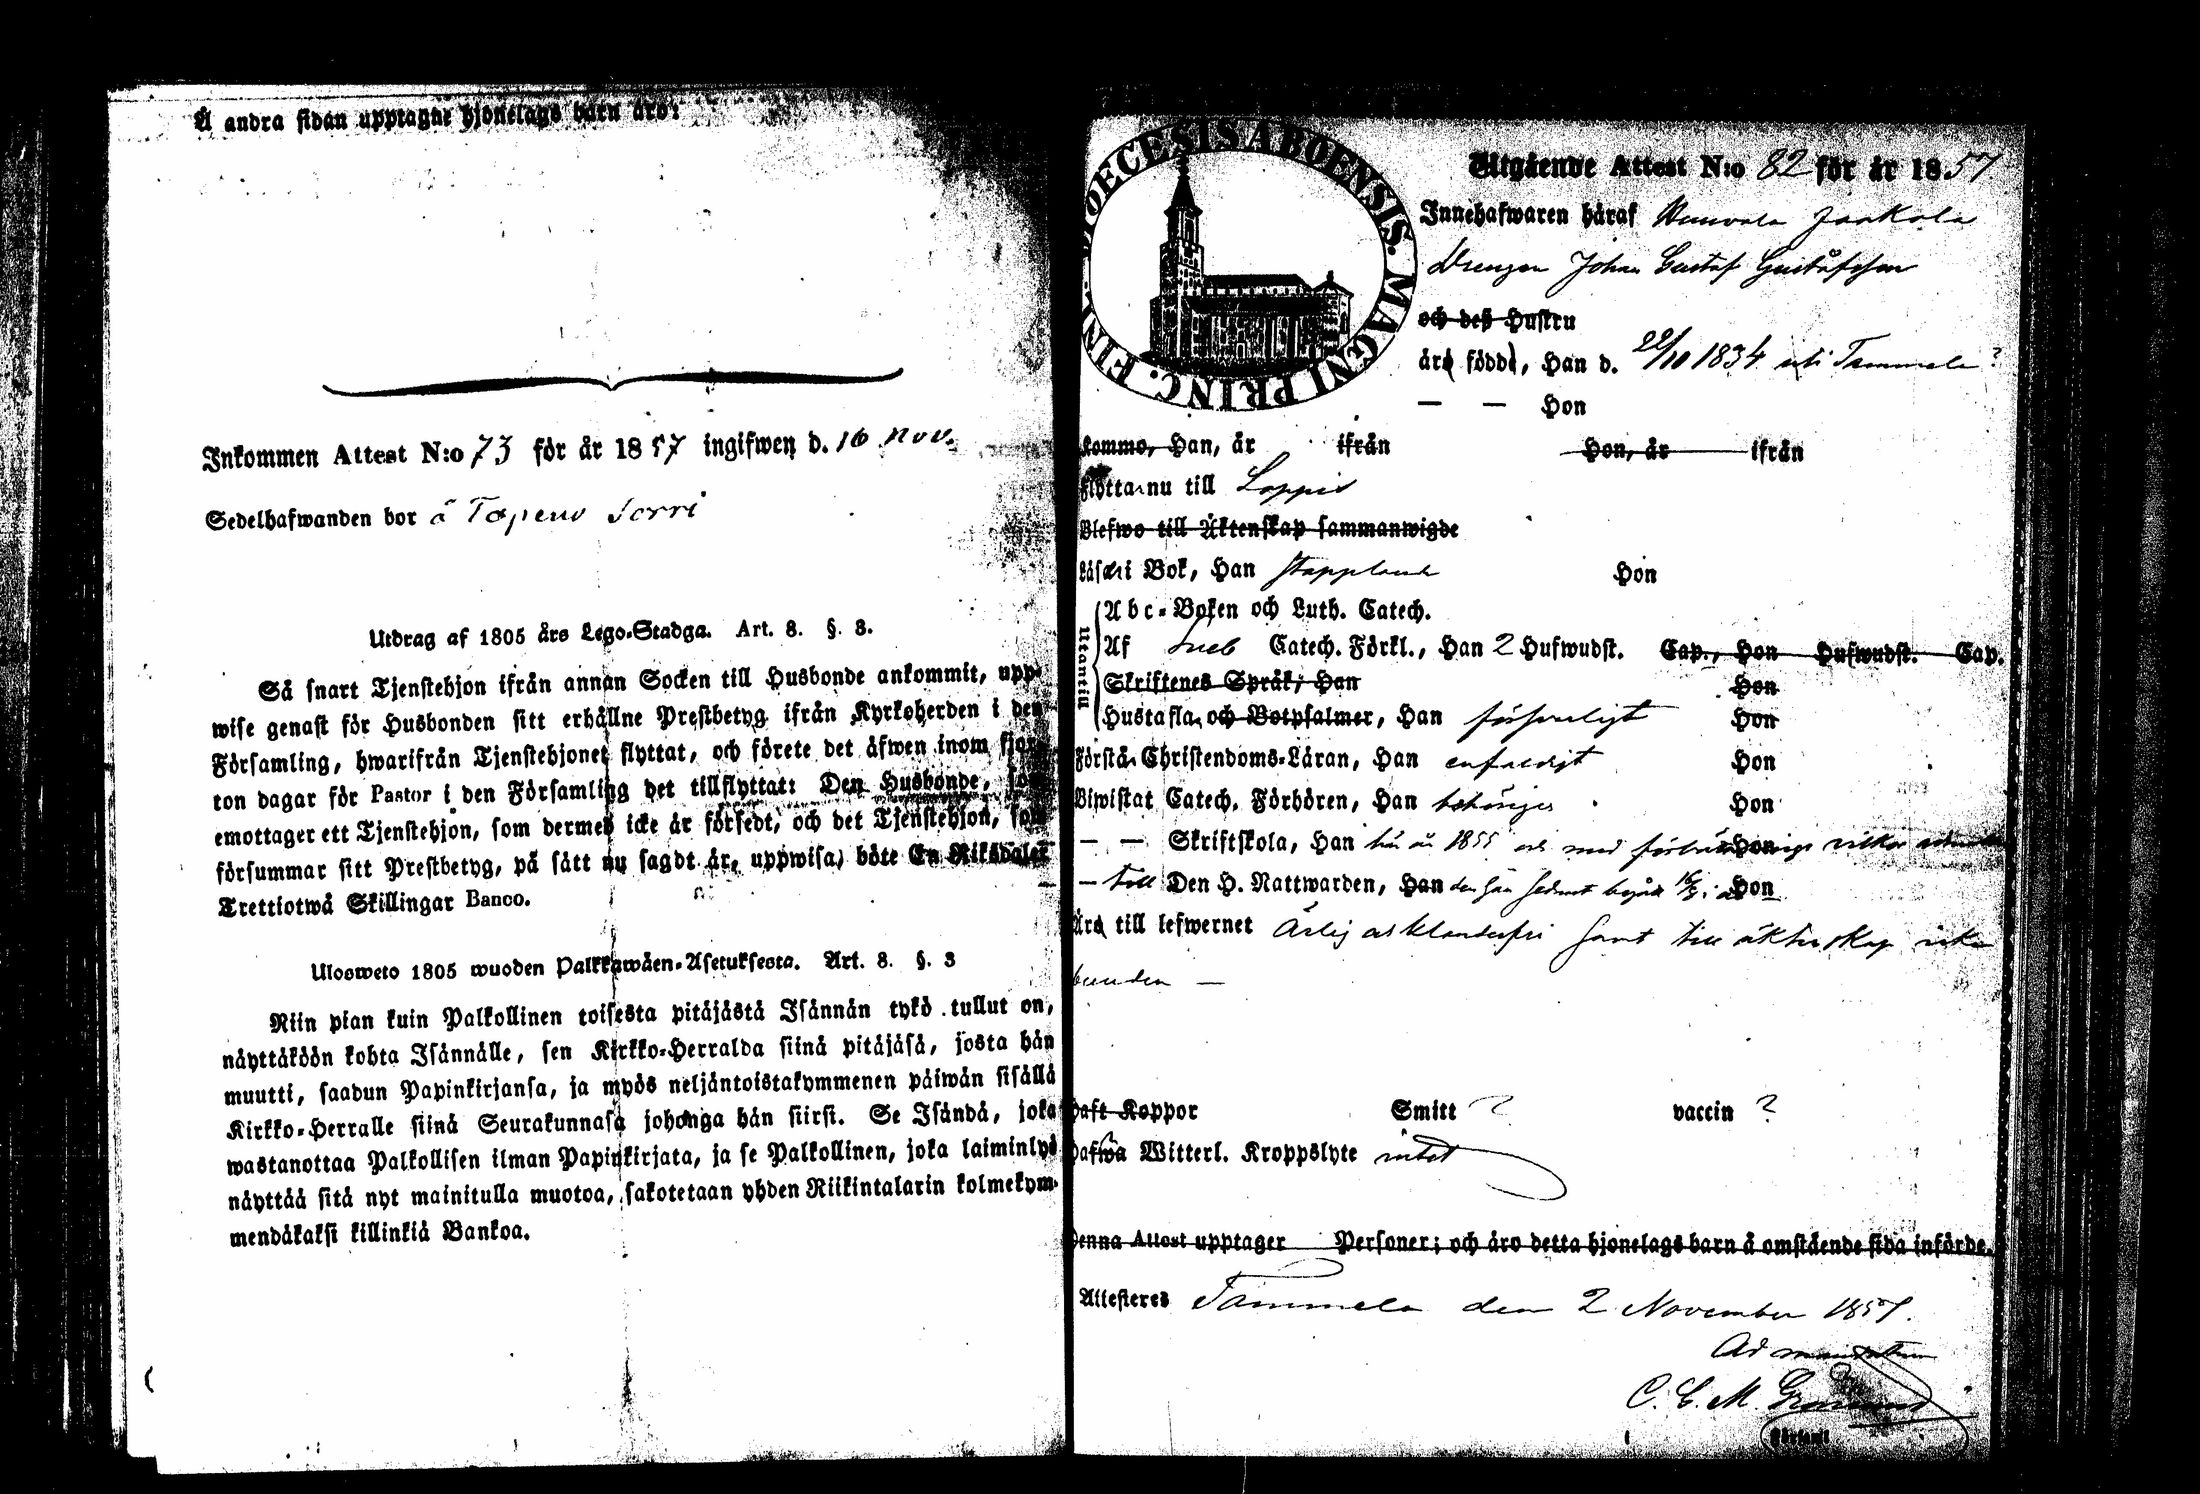 Å andra sidan upptagne hjonelags barn äro:
Inkommen Attest N:o 73 för år 1857 ingifwen d. 16 Nov.
Sedelhafwanden bor å Topeno Sorri
Utdrag af 1805 års Lego-Stadga. Art. 8. §. 3.
Så snart Tjenstehjon ifrån annan Socken till Husbonde ankommit, upp-
wise genast för Husbonden sitt erhållne Prestbetyg ifrån Kyrkoherden i den
Församling, hwarifrån Tjenstehjonet flyttat, och förete det äfwen inom fjor-
ton dagar för Pastor i den Församling det tillflyttat: Den Husbonde, som
emottager ett Tjenstehjon, som dermed icke är försedt, och det Tjenstehjon, som
försummar sitt Prestbetyg, på sätt nu sagdt är, uppwisa, böte En Riksdaler
Trettiotwå Skillingar Banco.
Ulosweto 1805 wuoden Palkkawäen-Asetuksesta. Art. 8. §. 3
Niin pian kuin Palkollinen toisesta pitäjästä Isännän tykö tullut on,
näyttäköön kohta Isännälle, sen Kirkko-Herralda siinä pitäjäsä, josta hän
muutti, saadun Papinkirjansa, ja myös neljäntoistakymmenen päiwän sisällä
Kirkko-Herralle siinä Seurakunnasa johonga hän siirsi. Se Isändä, joka
wastanottaa Palkollisen ilman Papinkirjata, ja se Palkollinen, joka laiminlyö
näyttää sitä nyt mainitulla muotoa, sakotetaan yhden Riikintalarin kolmekym-
mendäkaksi killinkiä Bankoa.
DIOECESIS ABOENSIS. MAGNI PRINC. FINL.
Utgående Attest N:o 82 för år 1857
Innehafwaren häraf Jaakola
Drengen Johan Gustaf Gustafsson
och deß Hustru
äro födde, Han d. 22/10 1834 uti Tammela ?
— — Hon
Kommo, Han, år ifrån Hon, år ifrån
Flytta nu till Loppis
Blefwo till Äktenskap sammanwigde
Läsa i Bok, Han stapplande Hon
Utantill
Abc-Boken och Luth. Catech.
Af Sveb Catech. Förkl., Han 2 Hufwudst. Cap., Hon Hufwudst. Cap.
Skriftenes Språk; Han Hon
Hustafla och Botpsalmer, Han försvarligt Hon
Förstå Christendoms-Läran, Han enfaldigt Hon
Biwistat Catech. Förhören, Han behörigen Hon
— — Skriftskola, Han 1855 med Hon
— till Den H. Nattwarden, Han Hon
Äro till lefwernet Ärlig och klanderfri samt till äktenskap icke
bunden —
Haft Koppor Smitt ? vaccin ?
Hafwa Witterl. Kroppslyte intet
Denna Attest upptager Personer; och äro detta hjonelags barn å omstående sida införde.
Attesteras Tammela den 2 November 1857.
Ad mandatum
C. E. M.